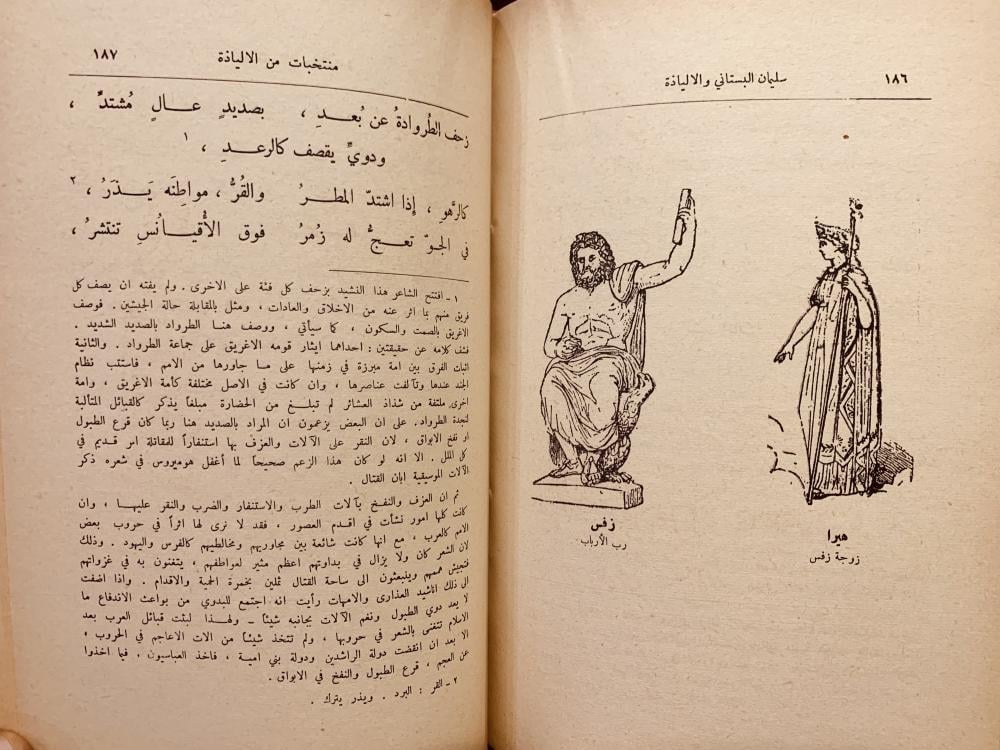 سليمان البستاني والالياذة ١٨٦
هيرا
زوجة زفس
زفس
رب الأرباب
منتخبات من الالياذة ١٨٧
زحف الطُروادةُ عن بُعـــدِ ، بصديدٍ عـــالٍ مُشتدٍّ ،
ودويٍّ يقصف كالرعـــدِ ، ١
كالرَّهوِ ، إذا اشتدّ المطـــرُ والقُرُّ ، مواطِنَه يَـــذَرُ ، ٢
في الجـوّ تعـجُّ له زُمرُ فوق الأُقيـانُسِ تنتشرُ ،
١ - افتتح الشاعر هذا النشيد بزحف كل فئة على الاخرى . ولم يفته ان يصف كل
فريق منهم بما اثر عنه من الاخلاق والعادات ، ومثل بالمقابلة حالة الجيشين . فوصف
الاغريق بالصمت والسكون ، كما سيأتي ، ووصف هنا الطرواد بالصديد الشديد .
فشف كلامه عن حقيقتين : احداهما ايثار قومه الاغريق على جماعة الطرواد . والثانية
اثبات الفرق بين امة مبرزة في زمنها على ما جاورها من الامم ، فاستتب نظام
الجند عندها وتآلفت عناصرها ، وان كانت في الاصل مختلفة كأمة الاغريق ، وامة
اخرى ملتفة من شذاذ العشائر لم تبلـغ من الحضارة مبلغاً يذكر كالقبائل المتألبة
لنجدة الطرواد . على ان البعض يزعمون ان المراد بالصديد هنا ربما كان قرع الطبول
او نفخ الابواق ، لان النقر على الآلات والعزف بها استنفاراً للمقاتلة امر قديم في
كل الملل . الا انه لو كان هذا الزعم صحيحاً لما أغفل هوميروس في شعره ذكر
الآلات الموسيقية ابان القتال .
ثم ان العزف والنفخ بآلات الطرب والاستنفار والضرب والنقر عليهـا ، وان
كانت كلها امور نشأت في اقدم العصور ، فقد لا نرى لها اثراً في حروب بعض
الامم كالعرب ، مع انها كانت شائعة بين مجاوريهم ومخالطيهم كالفرس واليهود . وذلك
لان الشعر كان ولا يزال في بداوتهم اعظم مثير لعواطفهم ، يتغنون به في غزواتهم
فتجيش هممهم وينبعثون الى ساحة القتال ثملين بخمرة الحمية والاقدام . واذا اضفت
الى ذلك اناشيد العذارى والامهات رأيت انه اجتمع للبدوي من بواعث الاندفاع ما
لا يعد دوي الطبول ونغم الآلات بجانبه شيئاً - ولهـذا لبثت قبائل العرب بعد
الاسلام تتغنى بالشعر في حروبها ، ولم تتخذ شيئاً من الات الاعاجم في الحروب ،
الا بعد ان انقضت دولة الراشدين ودولة بني امية ، فاخذ العباسيون . فيما اخذوا
عن العجم ، قرع الطبول والنفخ في الابواق .
٢ - القر : البرد . ويذر يترك .